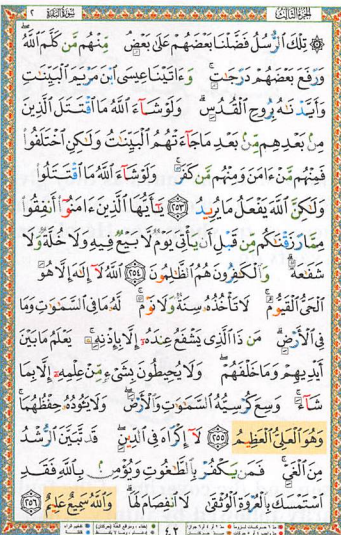 الجزء الثالث سورة البقرة ٢
۞ تِلْكَ الرُّسُلُ فَضَّلْنَا بَعْضَهُمْ عَلَىٰ بَعْضٍ ۘ مِنْهُم مَّن كَلَّمَ اللَّهُ ۖ
وَرَفَعَ بَعْضَهُمْ دَرَجَاتٍ ۚ وَءَاتَيْنَا عِيسَى ابْنَ مَرْيَمَ الْبَيِّنَاتِ
وَأَيَّدْنَاهُ بِرُوحِ الْقُدُسِ ۗ وَلَوْ شَاءَ اللَّهُ مَا اقْتَتَلَ الَّذِينَ
مِنۢ بَعْدِهِم مِّنۢ بَعْدِ مَا جَاءَتْهُمُ الْبَيِّنَاتُ وَلَٰكِنِ اخْتَلَفُوا
فَمِنْهُم مَّنْ ءَامَنَ وَمِنْهُم مَّن كَفَرَ ۚ وَلَوْ شَاءَ اللَّهُ مَا اقْتَتَلُوا
وَلَٰكِنَّ اللَّهَ يَفْعَلُ مَا يُرِيدُ ٢٥٣ يَا أَيُّهَا الَّذِينَ ءَامَنُوا أَنفِقُوا
مِمَّا رَزَقْنَاكُم مِّن قَبْلِ أَن يَأْتِيَ يَوْمٌ لَّا بَيْعٌ فِيهِ وَلَا خُلَّةٌ وَلَا
شَفَاعَةٌ ۗ وَالْكَافِرُونَ هُمُ الظَّالِمُونَ ٢٥٤ اللَّهُ لَا إِلَٰهَ إِلَّا هُوَ
الْحَيُّ الْقَيُّومُ ۚ لَا تَأْخُذُهُ سِنَةٌ وَلَا نَوْمٌ ۚ لَّهُ مَا فِي السَّمَاوَاتِ وَمَا
فِي الْأَرْضِ ۗ مَن ذَا الَّذِي يَشْفَعُ عِندَهُ إِلَّا بِإِذْنِهِ ۚ يَعْلَمُ مَا بَيْنَ
أَيْدِيهِمْ وَمَا خَلْفَهُمْ ۖ وَلَا يُحِيطُونَ بِشَيْءٍ مِّنْ عِلْمِهِ إِلَّا بِمَا
شَاءَ ۚ وَسِعَ كُرْسِيُّهُ السَّمَاوَاتِ وَالْأَرْضَ ۖ وَلَا يَئُودُهُ حِفْظُهُمَا ۚ
وَهُوَ الْعَلِيُّ الْعَظِيمُ ٢٥٥ لَا إِكْرَاهَ فِي الدِّينِ ۖ قَد تَّبَيَّنَ الرُّشْدُ
مِنَ الْغَيِّ ۚ فَمَن يَكْفُرْ بِالطَّاغُوتِ وَيُؤْمِنۢ بِاللَّهِ فَقَدِ
اسْتَمْسَكَ بِالْعُرْوَةِ الْوُثْقَىٰ لَا انفِصَامَ لَهَا ۗ وَاللَّهُ سَمِيعٌ عَلِيمٌ ٢٥٦
٤٢